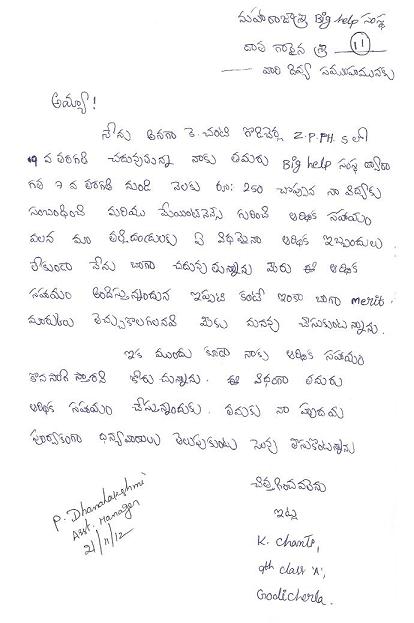 మహారాజశ్రీ Big help సంస్థ
దాత గారైన శ్రీ (11)
వారి దివ్య సముఖమునకు
అమ్మా!
నేను అనగా కె. చంటి గొడిచెర్ల Z.P.P.H.S లో
9 వ తరగతి చదువుచున్న నాకు తమరు Big help సంస్థ ద్వారా
గత 7 వ తరగతి నుండి నెలకు రూ: 250 చొప్పున నా విద్యకు
సంబంధించి మరియు మెయింటెనెన్స్ గురించి ఆర్థిక సహాయం
వలన మా తల్లిదండ్రులకు ఏ విధమైన ఆర్థిక ఇబ్బందులు
లేకుండా నేను బాగా చదువుతున్నాను మీరు ఈ ఆర్థిక
సహాయం అందిస్తున్నందున ఇప్పటి కంటే ఇంకా బాగా merit
మార్కులు తెచ్చుకోగలనని మీకు మనవి చేసుకుంటున్నాను.
ఇక ముందు కూడా నాకు ఆర్థిక సహాయం
కొనసాగి స్తారని కోరుచున్నాను. ఈ విధంగా తమరు
ఆర్థిక సహాయం చేస్తున్నందుకు. తమకు నా హృదయ
పూర్వకంగా ధన్యవాదాలు తెలుపుకుంటూ సెలవు తీసుకుంటున్నాను
చిత్తగించవలెను
ఇట్లు
K. Chanti,
9th class 'A',
Godicherla.
P. Dhanalakshmi
Asst. Manager
2/11/12